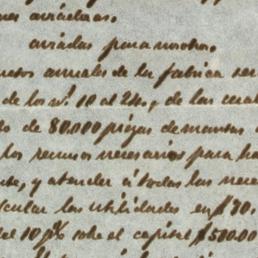 nes aviadoras.
aviadas para nosotros.
netos anuales de la fabrica ser
de los n.º 10 al 24, y de las cual
do de 80.000 piezas de mantas
los recursos necesarios para ha
te, y atender á todas las nece
cular las utilidades en $30.
del 10 p% sobre el capital $500.00